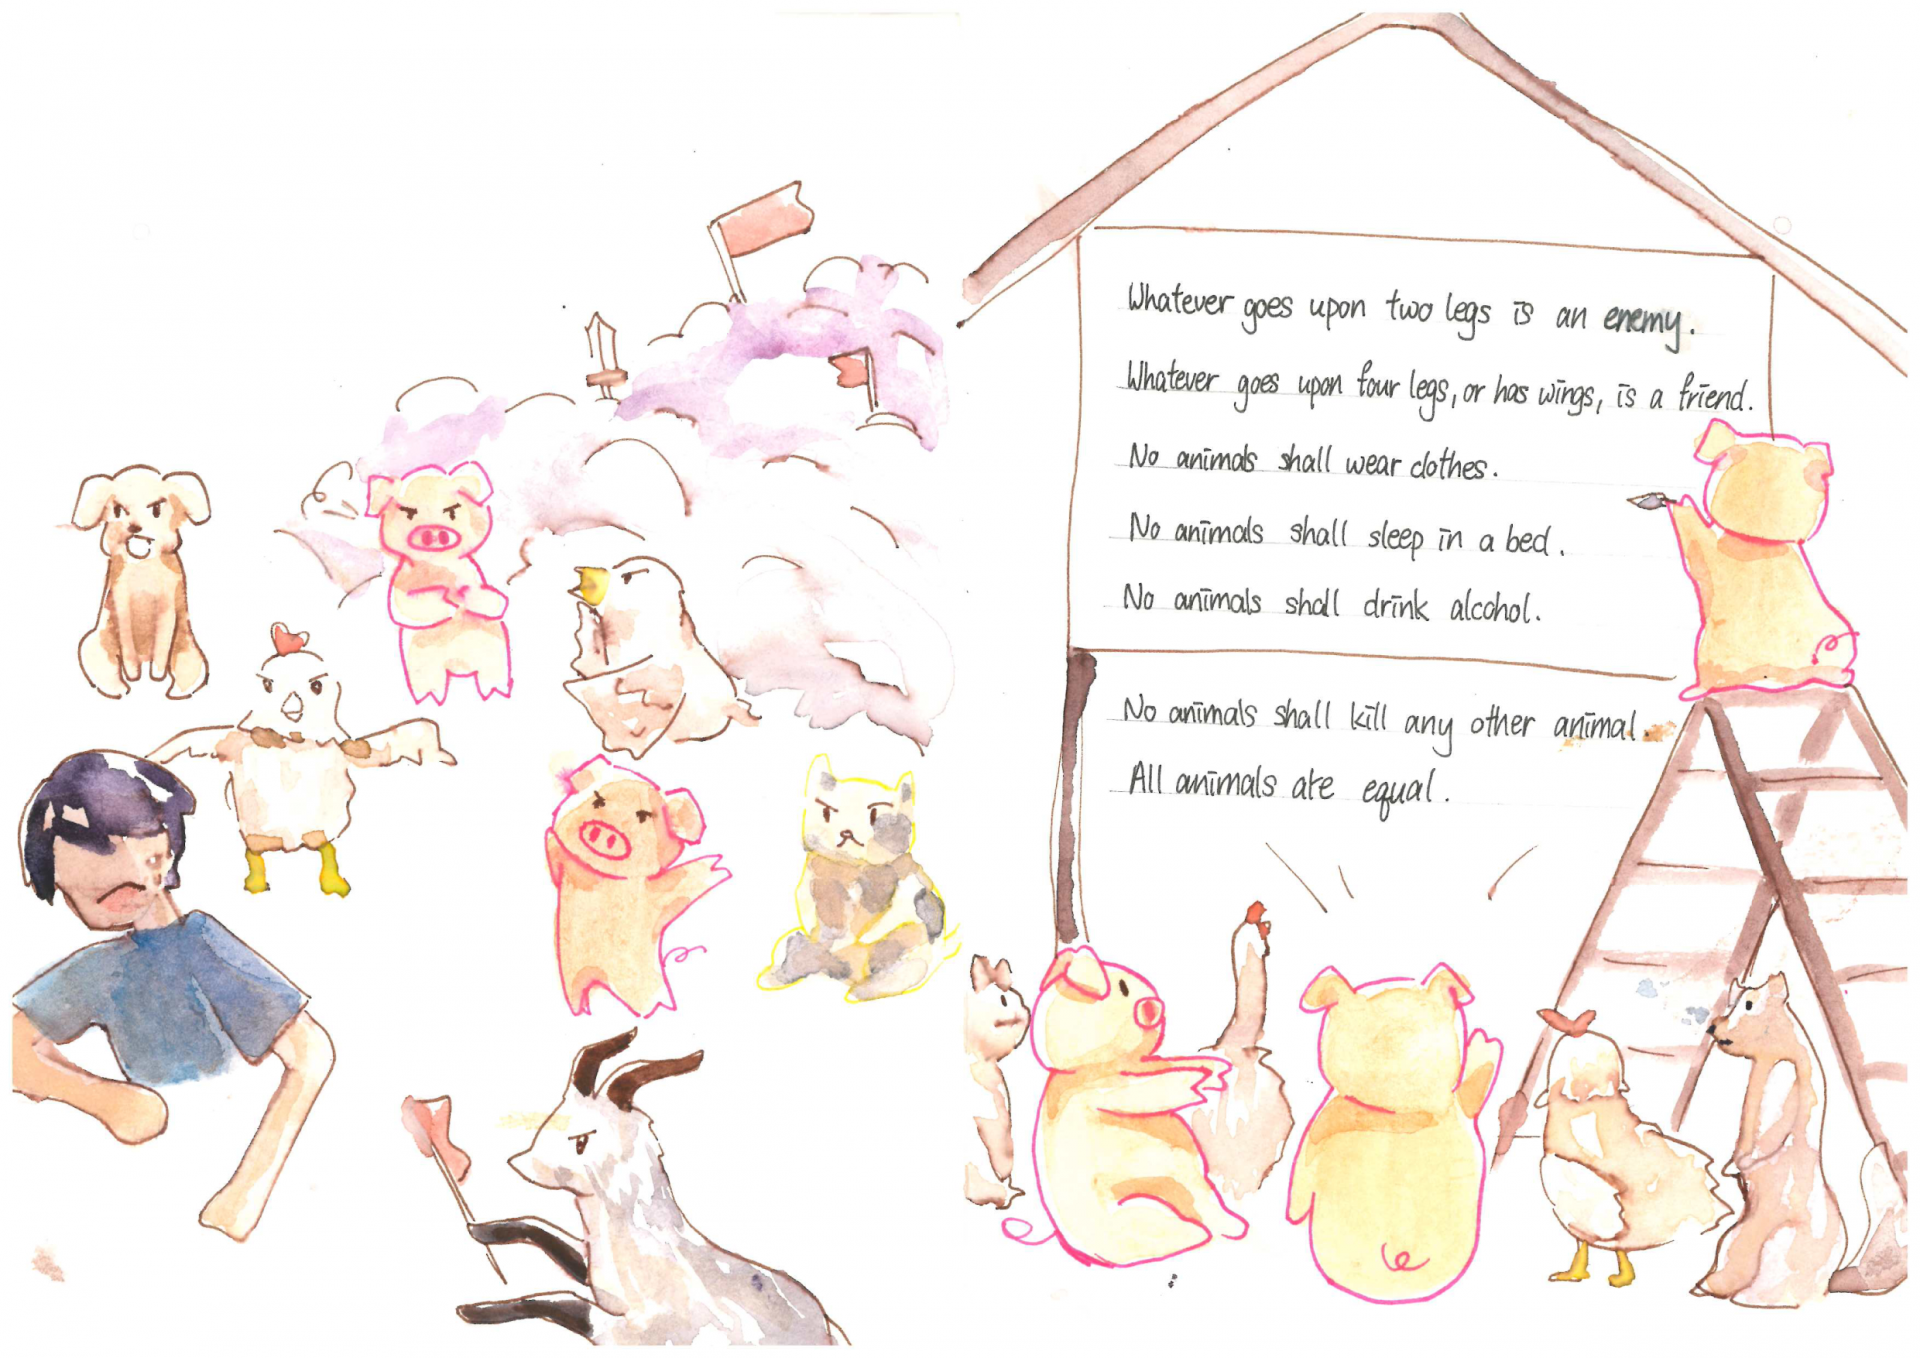 Whatever goes upon two legs is an enemy.
Whatever goes upon four legs, or has wings, is a friend.
No animals shall wear clothes.
No animals shall sleep in a bed.
No animals shall drink alcohol.
No animals shall kill any other animal.
All animals are equal.